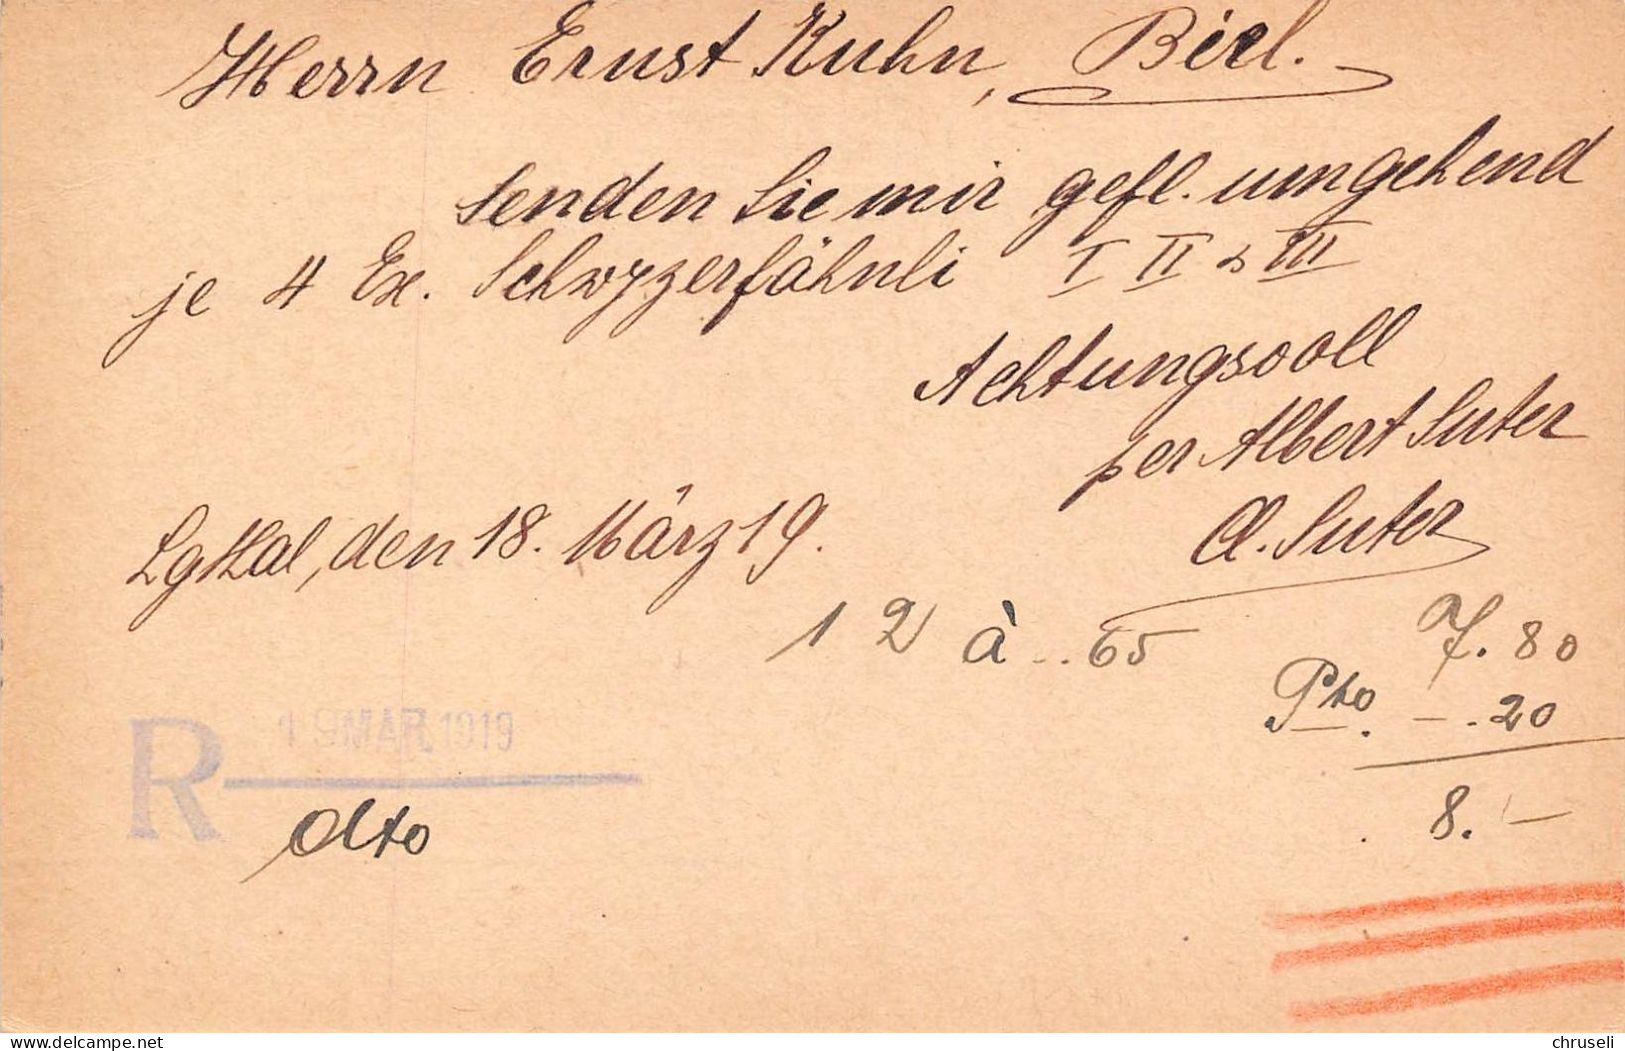 Herrn Ernst Kuhn, Biel.
Senden Sie mir gefl. umgehend
je 4 Ex. Schwyzerfähnli I II & III
Achtungsvoll
per Albert Suter
A. Suter
Lgthal, den 18. März 19.
12 à -.65 7.80
Pto. -.20
8.-
R 19 MAR. 1919
delcampe.net
chruseli